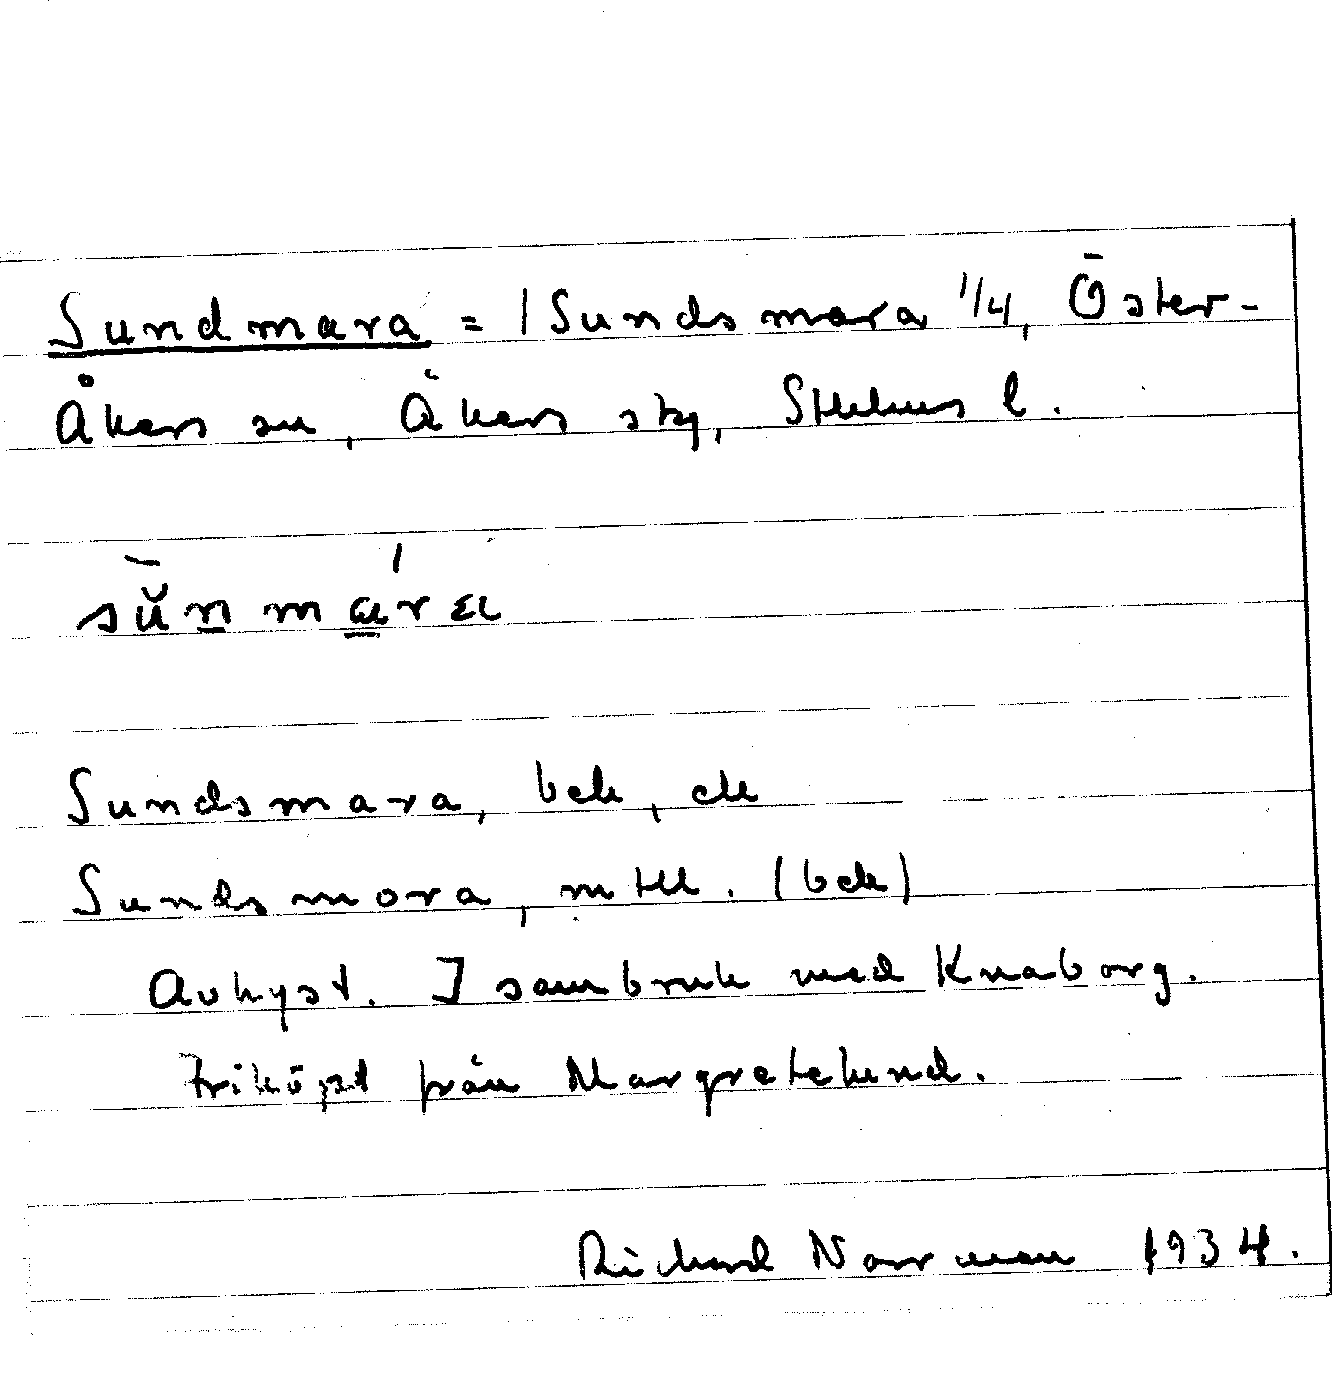 Sundmara = 1 Sundsmara 1/4, Öster-
Åkers sn, Åkers sky, Sthlms l.
Sundsmara, bek, ek
Sundsmora, mtl. (bek)
Avhyst. I sambruk med Knaborg.
Friköpt från Margretelund.
Richard Norrman 1934.